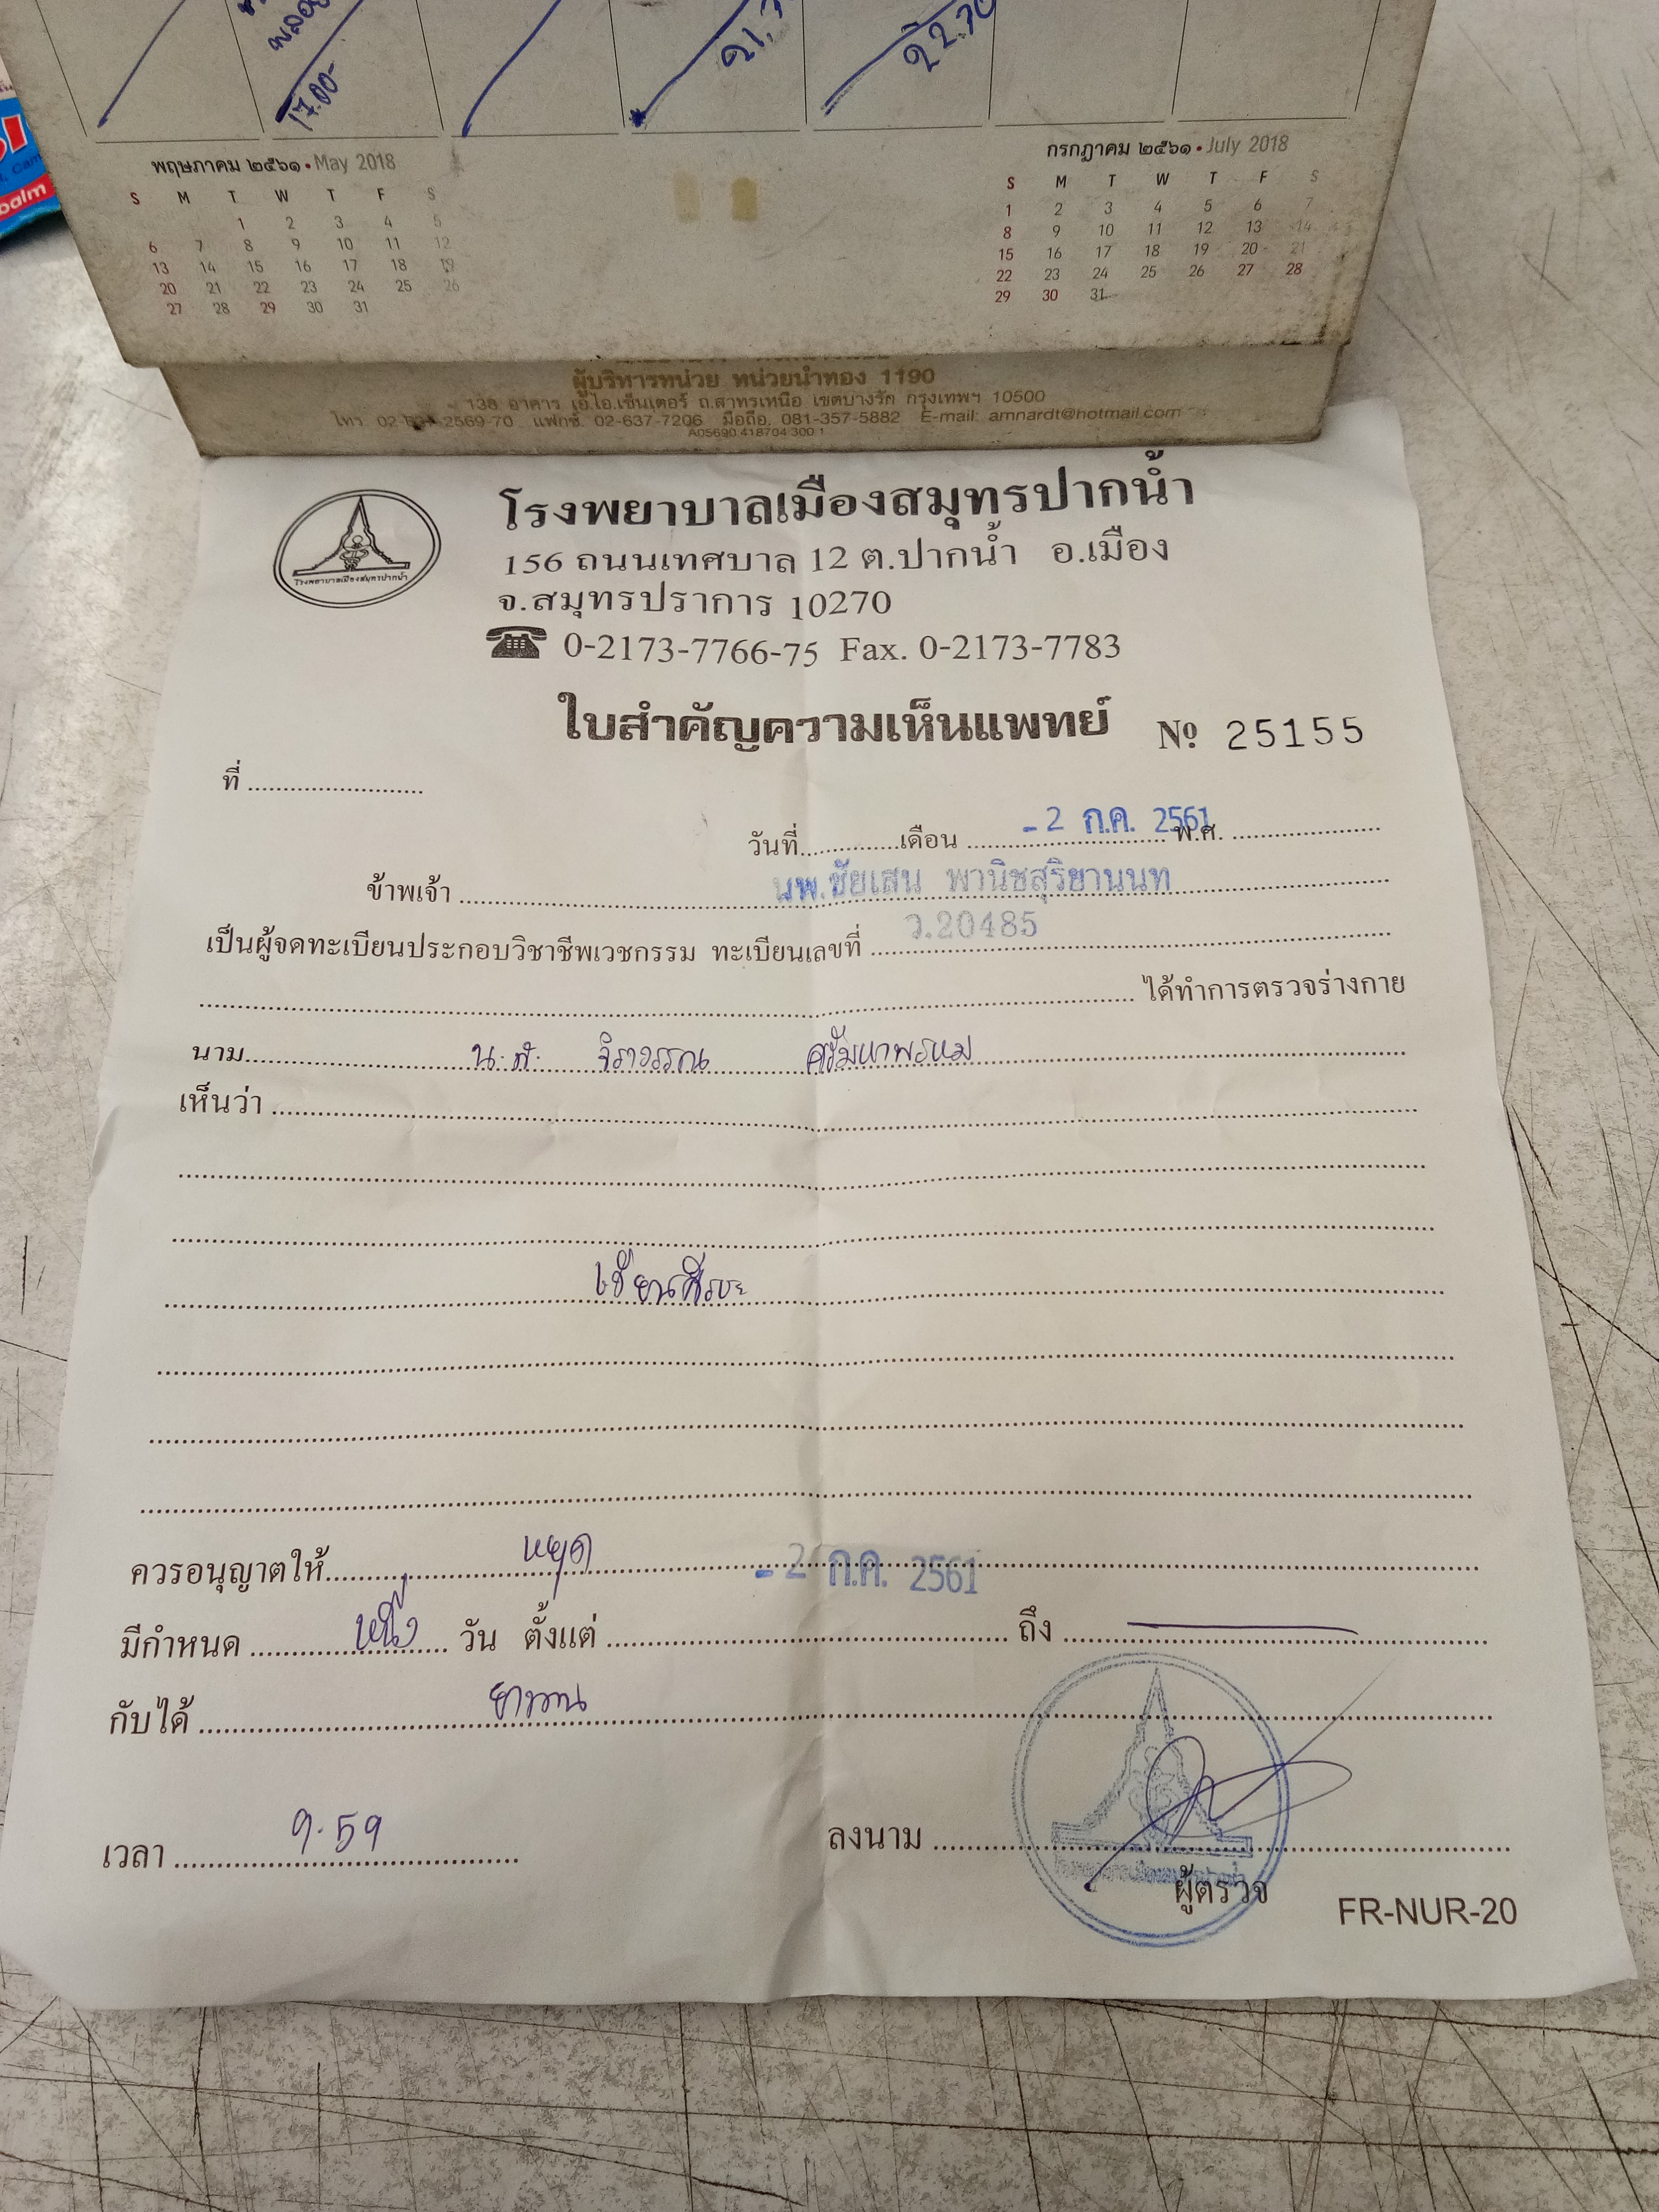 21.7
22.70
17.00-
พฤษภาคม ๒๕๖๑ • May 2018
S M T W T F S
1 2 3 4 5
6 7 8 9 10 11 12
13 14 15 16 17 18 19
20 21 22 23 24 25 26
27 28 29 30 31
กรกฎาคม ๒๕๖๑ • July 2018
S M T W T F S
1 2 3 4 5 6 7
8 9 10 11 12 13 14
15 16 17 18 19 20 21
22 23 24 25 26 27 28
29 30 31
ผู้บริหารหน่วย หน่วยนำทอง 1190
138 อาคาร เอ.ไอ.เซ็นเตอร์ ถ.สาทรเหนือ เขตบางรัก กรุงเทพฯ 10500
โทร. 2569-70 แฟกซ์. 02-637-7206 มือถือ. 081-357-5882 E-mail: amnardt@hotmail.com
โรงพยาบาลเมืองสมุทรปากน้ำ
โรงพยาบาลเมืองสมุทรปากน้ำ
156 ถนนเทศบาล 12 ต.ปากน้ำ อ.เมือง
จ.สมุทรปราการ 10270
0-2173-7766-75 Fax. 0-2173-7783
ใบสำคัญความเห็นแพทย์ № 25155
ที่
วันที่ เดือน - 2 ก.ค. 2561 พ.ศ.
ข้าพเจ้า นพ.ชัยเสน พานิชสุริยานนท
เป็นผู้จดทะเบียนประกอบวิชาชีพเวชกรรม ทะเบียนเลขที่ ว.20485
ได้ทำการตรวจร่างกาย
นาม น.ส. จิราวรรณ ศรีมหาพรหม
เห็นว่า
เวียนศีรษะ
ควรอนุญาตให้ หยุด - 2 ก.ค. 2561
มีกำหนด หนึ่ง วัน ตั้งแต่ ถึง
กับได้ ยาทาน
เวลา 9.59
ลงนาม
ผู้ตรวจ
FR-NUR-20